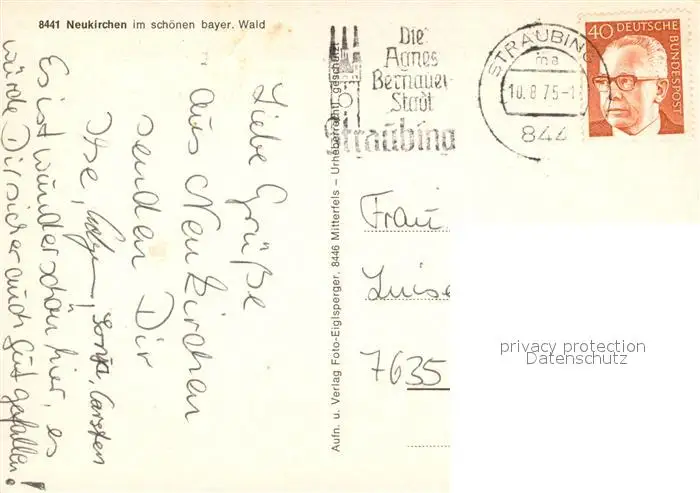 8441 Neukirchen im schönen bayer. Wald
Liebe Grüße
aus Neukirchen
senden Dir
Ilse, Sonja, Carsten
Es ist wunderschön hier, es
würde Dir sicher auch gut gefallen!
Aufn. u. Verlag Foto-Eiglsperger, 8446 Mitterfels – Urheberrechtl. geschützt
Die
Agnes
Bernauer
Stadt
Straubing
STRAUBING
ma
10.8.75-1
844
40 DEUTSCHE BUNDESPOST
Frau
Luise
7635
privacy protection
Datenschutz